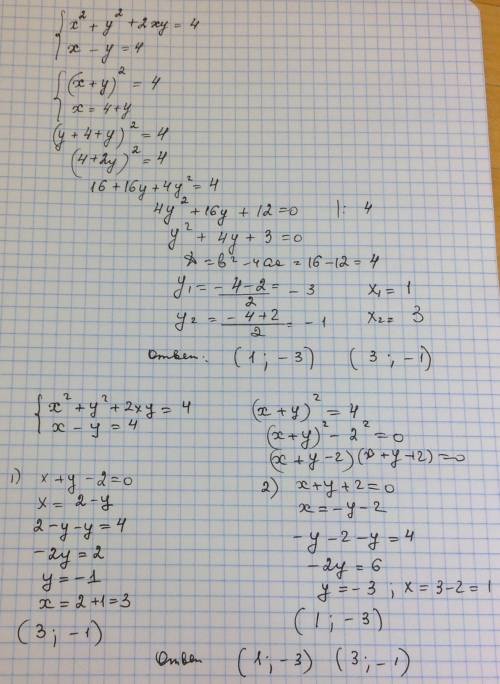 { x² + y² + 2xy = 4
x - y = 4
{ (x+y)² = 4
x = 4+y
(y+4+y)² = 4
(4+2y)² = 4
16+16y+4y² = 4
4y² + 16y + 12 = 0 |: 4
y² + 4y + 3 = 0
D = в² - 4ac = 16-12 = 4
y₁ = (-4-2)/2 = -3 x₁ = 1
y₂ = (-4+2)/2 = -1 x₂ = 3
Ответ: (1; -3) (3; -1)
{ x² + y² + 2xy = 4
x - y = 4
1) x+y-2=0
x = 2-y
2-y-y = 4
-2y = 2
y = -1
x = 2+1 = 3
(3; -1)
(x+y)² = 4
(x+y)² - 2² = 0
(x+y-2)(x+y+2) = 0
2) x+y+2=0
x = -y-2
-y-2-y = 4
-2y = 6
y = -3 ; x = 3-2 = 1
(1; -3)
Ответ (1; -3) (3; -1)